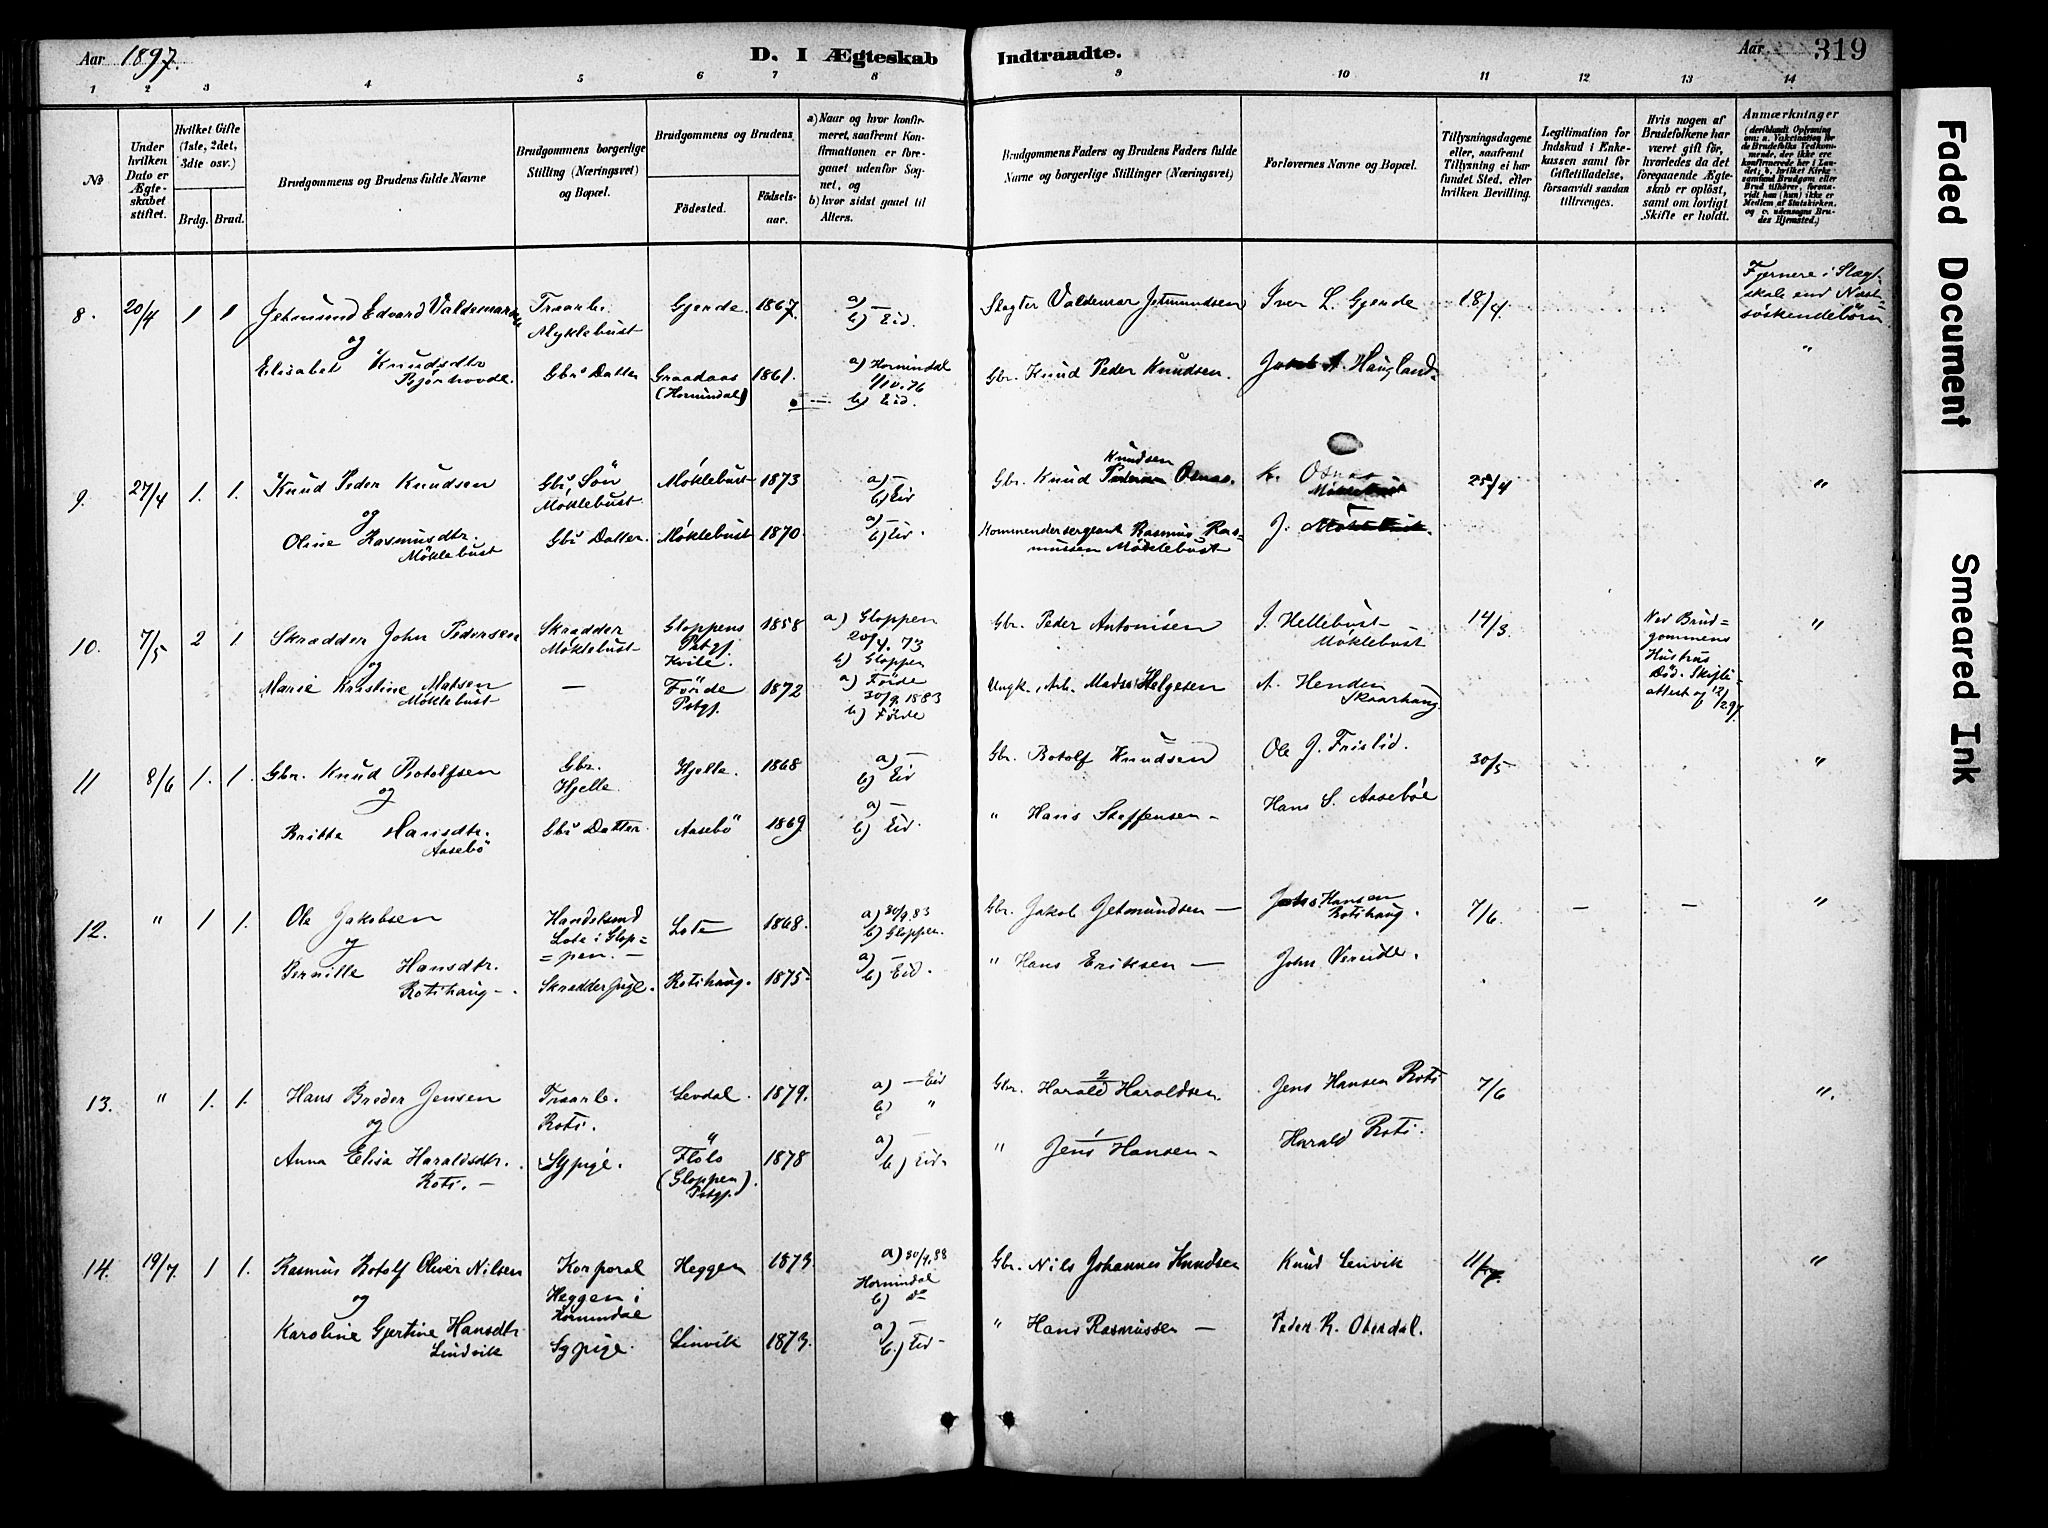 Aar 1897.
D. I Ægteskab Indtraadte.
Aar 319
1 2 3 4 5 6 7 8 9 10 11 12 13 14
No
Under hvilken Dato er Ægteskabet stiftet.
Hvilket Gifte (1ste, 2det, 3die osv.)
Brdg. Brud.
Brudgommens og Brudens fulde Navne
Brudgommens borgerlige Stilling (Næringsvei) og Bopæl.
Brudgommens og Brudens
Fødested.
Fødselsaar.
a) Naar og hvor konfirmeret, saafremt Konfirmationen er foregaaet udenfor Sognet, og
b) hvor sidst gaaet til Alters.
Brudgommens Faders og Brudens Faders fulde Navne og borgerlige Stillinger (Næringsvei)
Forlovernes Navne og Bopæl.
Tillysningsdagene eller, saafremt Tillysning ei har fundet Sted, efter hvilken Bevilling.
Legitimation for Indskud i Enkekassen samt for Giftetilladelse, forsaavidt saadan tiltrænges.
Hvis nogen af Brudefolkene har været gift før, hvorledes da det foregaaende Ægteskab er opløst, samt om lovligt Skifte er holdt.
Anmærkninger
(deriblandt Oplysning om: a. Vakcination for de Brudefolks Vedkommende, der ikke ere konfirmerede her i Landet; b. hvilket Kirkesamfund Brudgom eller Brud tilhører, forsaavidt han (hun) ikke er Medlem af Statskirken, og c. udensogns Brudes Hjemsted.)
8. 20/4 1 1 Jetmund Edvard Valdemarsen Traarb. Myklebust Gjerde. 1867. a) — b) Eid. Slagter Valdemar Jetmundsen Iver L. Gjerde 18/4. Fjernere i Slægtskab end Næstsøskendebørn
og
Elisabet Knudsdtr Bjørhovde. Gbrs Datter Graadaas (Hornindal) 1861. a) Hornindal 1/10.76 b) Eid. Gbr. Knud Peder Knudsen. Jakob A. Haugland. "
9. 27/4 1. 1. Knud Peder Knudsen Gbs Søn Møklebust Møklebust 1873 a) — b) Eid Gbr. Knud Knudsen Osnas. K. Osnas 25/4 "
og
Oline Rasmusdtr. Møklebust Gbs Datter. Møklebust 1870. a) — b) Eid. Kommendersergeant Rasmus Rasmussen Møklebust J. Møklebust.
10. 7/5 2 1. Skrædder John Pedersen Skrædder Møklebust Gloppens Pstgj. Kvile. 1858 a) Gloppen 20/4.73 b) Gloppen Gbr. Peder Antonisen J. Hellebust Møklebust 14/3. Ved Brudgommens Hustrus Død. Skifteattest af 12/2 97 "
og
Marie Kristine Matsen Møklebust — Förde Pstgj. 1872 a) Førde 30/9.1883 b) Førde Ungk., Arb. Mads Helgesen A. Henden Skaarhaug
11 8/6 1. 1. Gbr. Knud Botolfsen Gbr. Hjelle Hjelle. 1868 a) — b) Eid Gbr. Botolf Knudsen Ole J. Frislid. 30/5 "
og
Britta Hansdtr. Aasebö Gbs Datter. Aasebö 1869 a) — b) Eid. " Hans Steffensen — Hans S. Aasebøe
12. " 1 1. Ole Jakobsen Handelsmd Lote i Gloppen. — Lote 1868 a) 30/9.83 b) Gloppen. Gbr. Jakob Jetmundsen — Jens Hansen Rotihaug. 7/6. — — "
og
Pernille Hansdtr. Rotihaug —. Skrædderpige. Rotihaug. 1875. a) — b) Eid. " Hans Eriksen — John Verude.
13. " 1. 1. Hans Breder Jensen Traarb. Roti. Levdal. 1879. a) — Eid b) " Gbr. 2 Harald Haraldsen. Jens Hansen Roti 7/6 ".
og
Anna Elisa Haraldsdtr. Roti. — Sypige. Flölo (Gloppen Pstgj.) 1878 a) — b) Eid. " 1 Jens Hansen — Harald Roti.
14. 19/7. 1 1. Rasmus Botolf Oliver Nilsen Korporal Heggen i Hornindal Heggen 1873. a) 30/9.88 Hornindal b) do Gbr. Nils Johannes Knudsen Knud Lenvik 11/7. "
og
Karoline Gjertine Hansdtr Lindvik Sypige. Linvik 1873. a) — b) Eid — " Hans Rasmussen — Peder R. Oterdal.
Faded Document
Smeared Ink